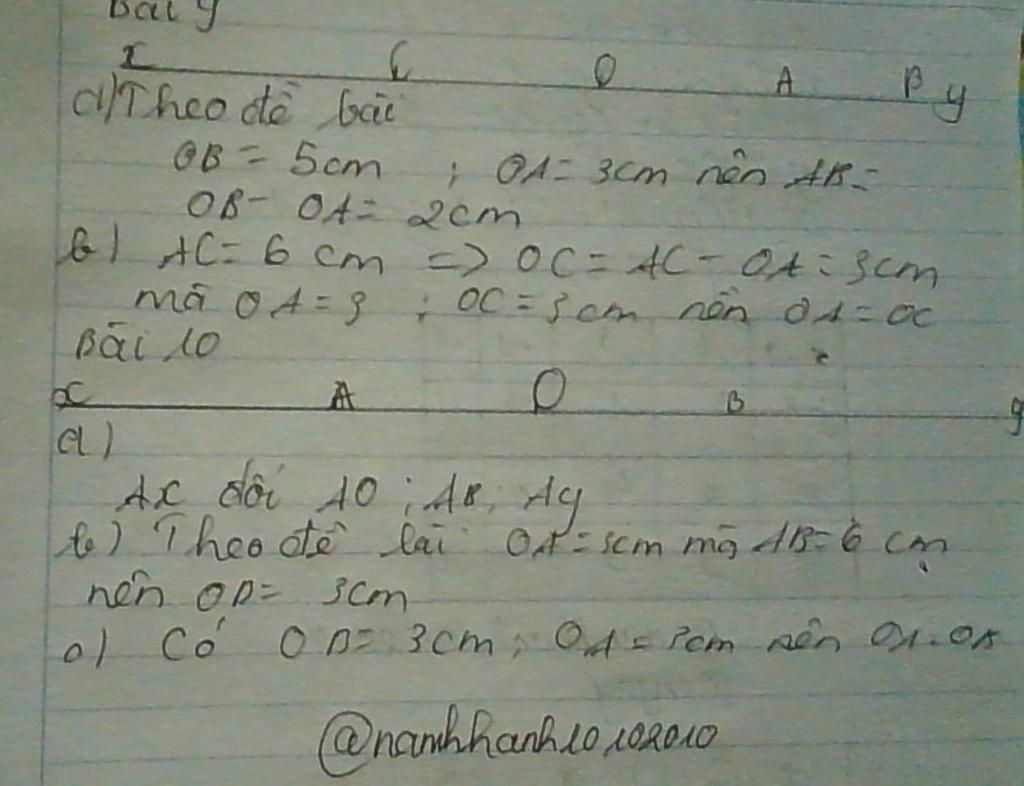 Bài 9
x C O A B y
a) Theo đề bài
OB = 5cm ; OA = 3cm nên AB =
OB - OA = 2cm
b) AC = 6 cm => OC = AC - OA = 3cm
mà OA = 3 ; OC = 3cm nên OA = OC
Bài 10
x A O B y
a)
Ax đối AO ; AB, Ay
b) Theo đề bài OA = 3cm mà AB = 6 cm
nên OB = 3cm
c) Có OB = 3cm ; OA = 3cm nên OA = OB
@namhhanh10102010